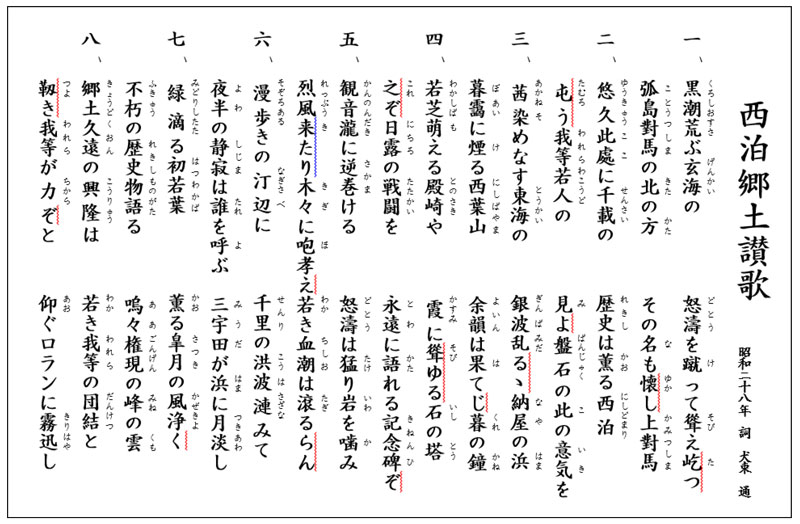 西泊郷土讃歌
昭和二十八年 詞 犬束 通
一、黒潮荒ぶ玄海の 怒濤を蹴って聳え屹つ
孤島對馬の北の方 その名も懐し上對馬
二、悠久此處に千載の 歴史は薫る西泊
屯う我等若人の 見よ盤石の此の意気を
三、茜染めなす東海の 銀波乱るゝ納屋の浜
暮靄に煙る西葉山 余韻は果てじ暮の鐘
四、若芝萌える殿崎や 霞に聳ゆる石の塔
之ぞ日露の戦闘を 永遠に語れる記念碑ぞ
五、観音瀧に逆巻ける 怒濤は猛り岩を噛み
烈風来たり木々に咆孝え 若き血潮は滾るらん
六、漫歩きの汀辺に 千里の洪波漣みて
夜半の静寂は誰を呼ぶ 三宇田が浜に月淡し
七、緑滴る初若葉 薫る皐月の風浄く
不朽の歴史物語る 嗚々権現の峰の雲
八、郷土久遠の興隆は 若き我等の団結と
靱き我等が力ぞと 仰ぐロランに霧迅し